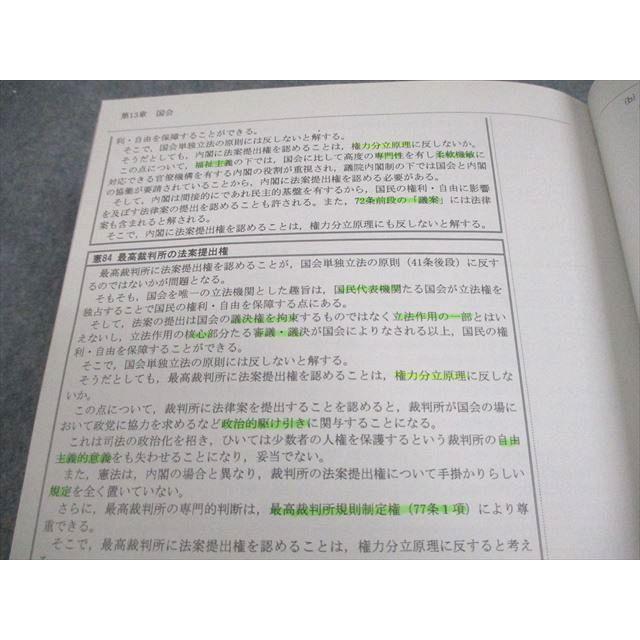 第13章 国会
利・自由を保障することができる。
そこで、国会単独立法の原則には反しないと解する。
そうだとしても、内閣に法案提出権を認めることは、権力分立原理に反しないか。
この点について、福祉主義の下では、国会に比して高度の専門性を有し柔軟機敏に
対応できる官僚機構を有する内閣の役割が重視され、議院内閣制の下では国会と内閣
の協働が要請されていることから、内閣に法案提出権を認める必要がある。
そして、内閣は間接的にであれ民主的基盤を有するから、国民の権利・自由に影響
を及ぼす法律案の提出を認めることも許される。また、72条前段の「議案」には法律
案も含まれると解される。
そこで、内閣に法案提出権を認めることは、権力分立原理にも反しないと解する。
憲84 最高裁判所の法案提出権
最高裁判所に法案提出権を認めることが、国会単独立法の原則（41条後段）に反す
るのではないかが問題となる。
そもそも、国会を唯一の立法機関とした趣旨は、国民代表機関たる国会が立法権を
独占することで国民の権利・自由を保障する点にある。
そして、法案の提出は国会の議決権を拘束するものではなく立法作用の一部とはい
えないし、立法作用の核心部分たる審議・議決が国会によりなされる以上、国民の権
利・自由を保障することができる。
そこで、国会単独立法の原則には反しないと解する。
そうだとしても、最高裁判所に法案提出権を認めることは、権力分立原理に反しな
いか。
この点について、裁判所に法律案を提出することを認めると、裁判所が国会の場に
おいて政党に協力を求めるなど政治的駆け引きに関与することになる。
これは司法の政治化を招き、ひいては少数者の人権を保護するという裁判所の自由
主義的意義をも失わせることになり、妥当でない。
また、憲法は、内閣の場合と異なり、裁判所の法案提出権について手掛かりらしい
規定を全く置いていない。
さらに、最高裁判所の専門的判断は、最高裁判所規則制定権（77条１項）により尊
重できる。
そこで、最高裁判所に法案提出権を認めることは、権力分立原理に反すると考え
(b)